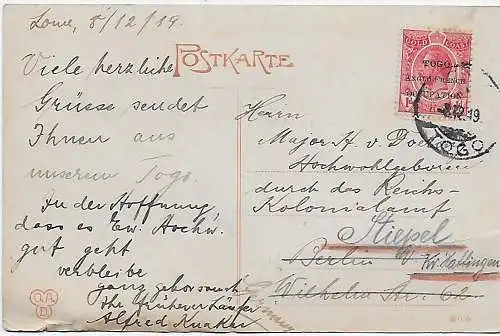 Lome, 8/12/19.
POSTKARTE
Viele herzliche
Grüsse sendet
Ihnen aus
unserem Togo.
In der Hoffnung,
dass es Ew. Hochw.
gut geht
verbleibe
ganz gehorsamst
Ihr
Alfred
GOLD COAST
TOGO
ANGLO-FRENCH
OCCUPATION
OGO
Herrn
Major H. v.
Hochwohlgeboren
durch das Reichs-
Kolonialamt
Stiepel
Berlin
Kr. Hattingen
Wilhelm Str. 62